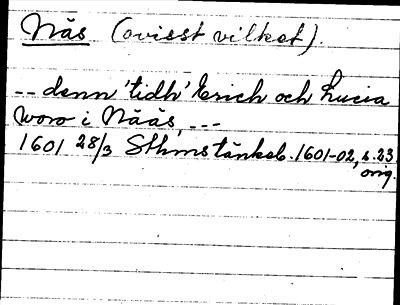 Näs (ovisst vilket).
-- denn 'tidh' Erich och Lucia
woro i Näås, ---
1601 28/3 Sthms tänkeb. 1601-02, s. 23
orig.